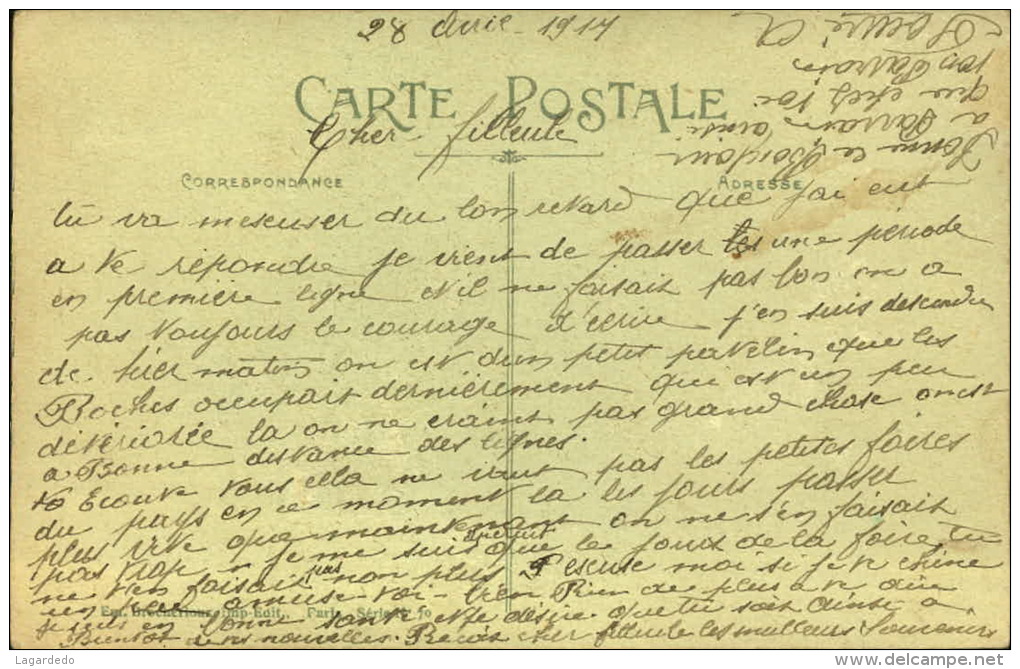 28 Avril 1917
CARTE POSTALE
Cher filleule
CORRESPONDANCE
ADRESSE
tu va mescuser du lon retard que j'ai eut
a te répondre je vient de passer une période
en première ligne et il ne faisait pas bon on a
pas toujours le courage d'écrire j'en suis descendu
de hier matin on est dans petit patelin que les
Boches occupait dernièrement qui est un peu
détériorée la on ne craint pas grand chose on est
a Bonne distance des lignes.
Ecoute tous cela ne vaut pas les petites foires
du pays en ce moment la les jours passer
plus vite que maintenant on ne s'en faisait
pas trop je me suis que le jour de la foire tu
ne t'en faisait pas non plus escuse moi si je te chine
un amuse-toi bien Rien de plus a te dire
je suis en bonne santé et te désire que tu sois ainsi a
Bientot a tes nouvelles. Recois cher filleule les meilleurs Souvenirs
Edit., Paris, Série N° 70
Donne le Bonjour
a Parrain ainsi
que chez toi
ton Parrain
© Lagardedo
www.delcampe.net